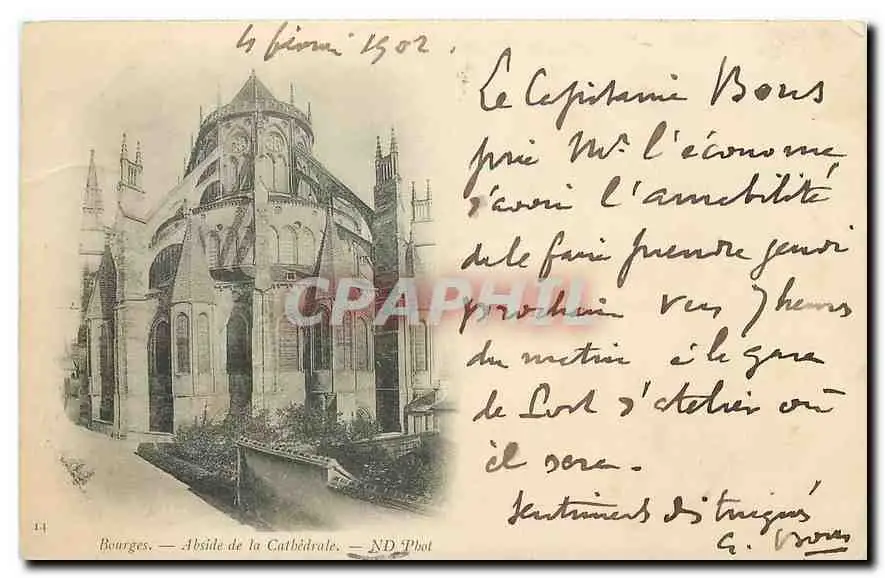 4 février 1902.
Le Capitaine Bous
prie Mr. l'économe
d'avoir l'amabilité
de le faire prendre jeudi
prochain vers 7 heures
du matin à la gare
de d'atelier où
il sera.
sentiments distingués
G.
CPARAMA
PHIL
14
Bourges. — Abside de la Cathédrale. — ND Phot